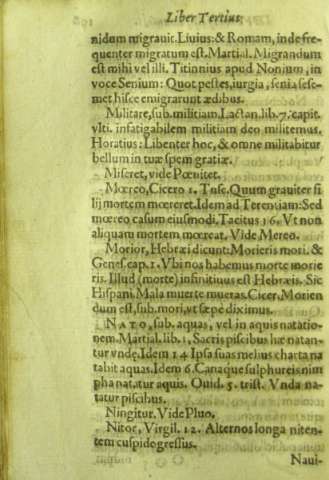 Liber Tertius,
nidum migrauit. Liuius: & Romam, inde fre-
quenter migratum est. Martial. Migrandum
est mihi vel illi. Titinnius apud Nonium, in
voce Senium: Quot pestes, iurgia, senia sese-
met hisce emigrarunt ædibus.
Militare, sub. militiam. Lactan. lib. 7. capit.
vlti. infatigabilem militiam deo militemus.
Horatius: Libenter hoc, & omne militabitur
bellum in tuæ spem gratiæ.
Miseret, vide Pœnitet.
Mœreo, Cicero 1. Tusc. Quum grauiter fi
lij mortem mœreret. Idem ad Terentiam: Sed
mœreo casum eiusmodi. Tacitus 16. Vt non
aliquam mortem mœreat, Vide Mereo.
Morior, Hebræi dicunt: Morieris mori. &
Genes. cap. 1. Vbi nos habemus morte morie
ris. Illud (morte) infinitiuus est Hebræis. Sic
Hispani. Mala muerte mueras. Cicer. Morien
dum est, sub. mori, vt sæpe diximus.
NATO, sub. aquas, vel in aquis natatio-
nem. Martial. lib. 1, Sacris piscibus hæ natan-
tur vndę. Idem 14 Ipsa suas melius charta na
tabit aquas. Idem 6. Canaque sulphureis nim
pha natatur aquis. Ouid. 5. trist. Vnda na-
tatur piscibus.
Ningitur. Vide Pluo,
Nitor, Virgil. 12. Alternos longa niten-
tem cuspide gressus.
Naui-